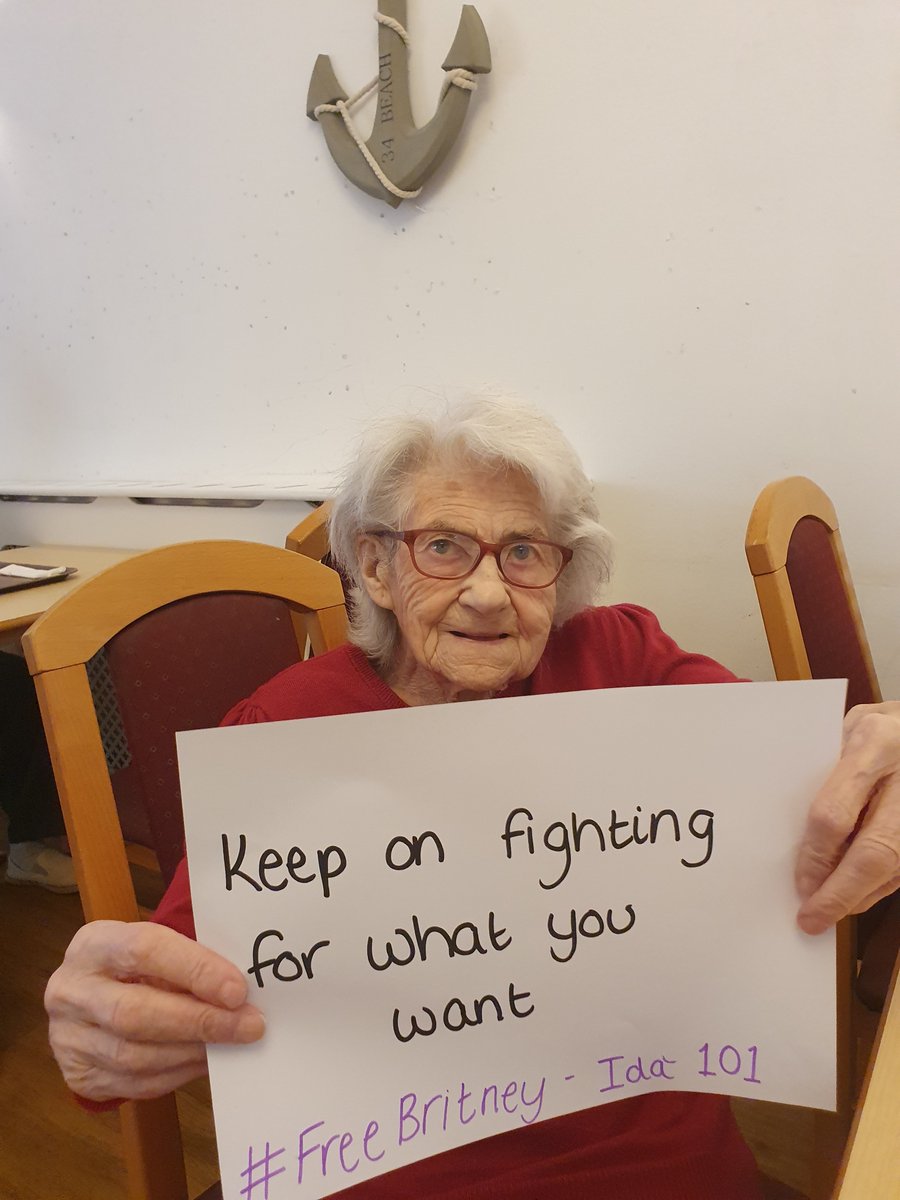 34 BEACH
Keep on fighting
for what you
want
#FreeBritney - Ida 101